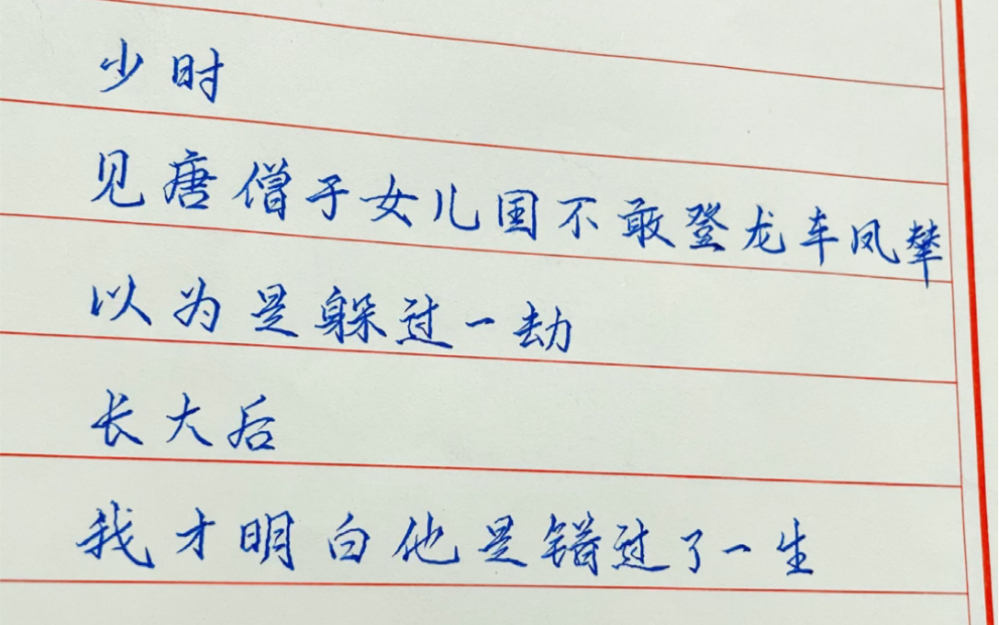 少时
见唐僧于女儿国不敢登龙车凤辇
以为是躲过一劫
长大后
我才明白他是错过了一生